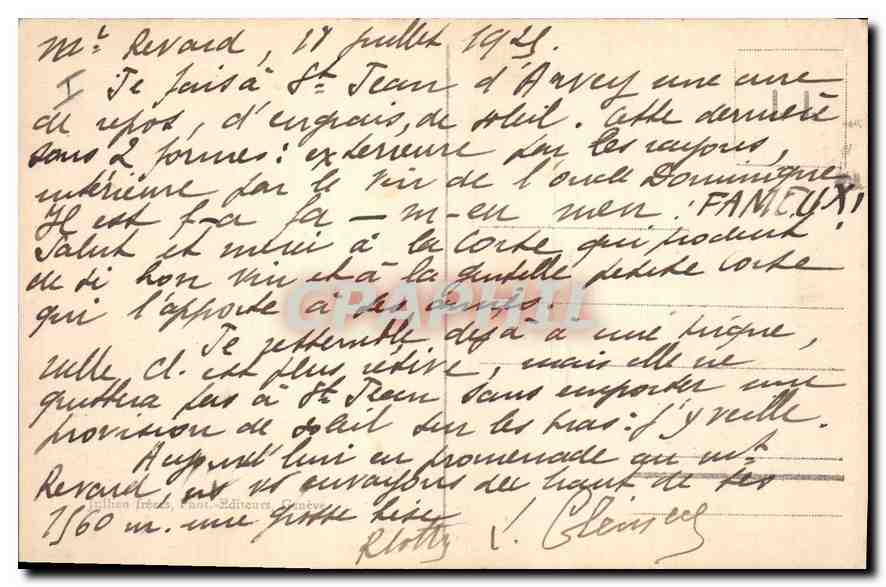 Mt Revard, 17 juillet 1925.
I Je fais à St Jean d'Arvey une cure
de repos, d'engrais, de soleil. Cette dernière
sous 2 formes : exterieure par les rayons,
intérieure par le vin de l'oncle Dominique
Il est f-a fa - m-eu meu : FAMEUX!
Salut et merci à la Corse qui produit
de si bon vin et à la gentille petite Corse
qui l'apporte à ses amis.
CPAPHIL
Je ressemble déjà à une brique,
Melle Cl. est plus rétive, mais elle ne
quittera pas à St Jean sans emporter une
provision de soleil sur les bras : j'y veille.
Aujourd'hui en promenade au mt
Revard ns vs envoyons du haut de ses
Jullien frères, Phot.-Editeurs, Genève
1560 m. une grosse bise